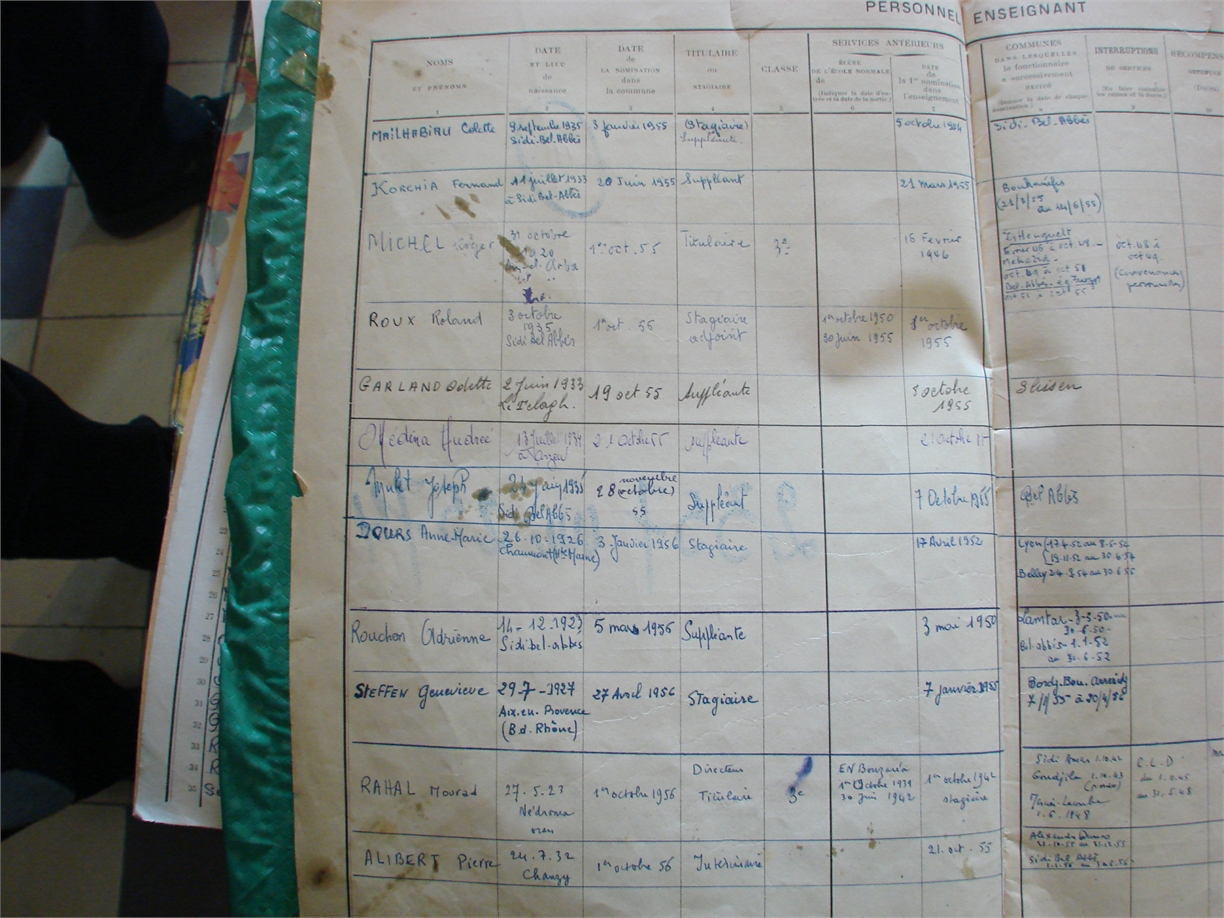 PERSONNEL ENSEIGNANT
NOMS
ET PRÉNOMS
DATE
ET LIEU
de
naissance
DATE
de
LA NOMINATION
dans
la commune
TITULAIRE
ou
STAGIAIRE
CLASSE
SERVICES ANTÉRIEURS
DE L'ÉCOLE NORMALE
de
DATE
de
la 1re nomination
dans
l'enseignement
COMMUNES
DANS LESQUELLES
le fonctionnaire
a successivement
exercé
INTERRUPTIONS
DE SERVICES
MAILHABIAU Colette
9 septembre 1935
Sidi-Bel-Abbès
3 janvier 1955
(Stagiaire)
Suppléante
5 octobre 1954
Sidi-Bel-Abbès
KORCHIA Fernand
11 juillet 1933
à Sidi Bel-Abbès
20 Juin 1955
Suppléant
21 mars 1955
Boukanéfis
(21/3/55
au 14/6/55)
MICHEL Roger
31 octobre
1920
1er oct. 55
Titulaire
3e
16 Février
1946
oct. 48 à
oct 49
(Convenances
personnelles)
ROUX Roland
3 octobre
1935
Sidi Bel Abbès
1er oct. 55
Stagiaire
adjoint
1er octobre 1950
30 juin 1955
1er octobre
1955
GARLAND Odette
2 Juin 1933
Le Telagh.
19 oct 55
Suppléante
5 octobre
1955
Slissen
Médina Andrée
13 Juillet 1934
à Arzew
21 Octobre 55
suppléante
21 Octobre 55
Mulet Joseph
Sidi Bel Abbès
novembre
28 (octobre)
55
Suppléant
7 Octobre 1955
Bel Abbès
DOURS Anne-Marie
26.10.1926
Chaumont (Hte Marne)
3 Janvier 1956
Stagiaire
17 Avril 1952
Lyon (17.4.52 au 8.5.54
19.11.52 au 30.6.54
Belley 24.9.54 au 30.6.55
Rouchon Adrienne
14-12.1923
Sidi.bel.abbès
5 mars 1956
Suppléante
3 mai 1950
Lamtar-3-5.50
30-6.50-
Bel-abbès-1.1-52
au 31.6.52
STEFFEN Geneviève
29-7-1927
Aix.en.Provence
(B.d.Rhône)
27 Avril 1956
Stagiaire
7 janvier 1955
Bordj.Bou.Arréridj
7/1/55 à 30/4/56
RAHAL Mourad
27.5.23
Nédroma
oran
1er octobre 1956
Directeur
Titulaire
3e
EN Bouzaréa
1er Octobre 1939
30 Juin 1942
1er octobre 1942
stagiaire
Sidi Amar 1.10.42
Goudjila 1.10.43
1.6.1948
C.L.D
du 1.0.45
au 31.5.48
ALIBERT Pierre
24.7.32
Chanzy
1er octobre 56
Intérimaire
21.oct.55
Sidi Bel Abbès